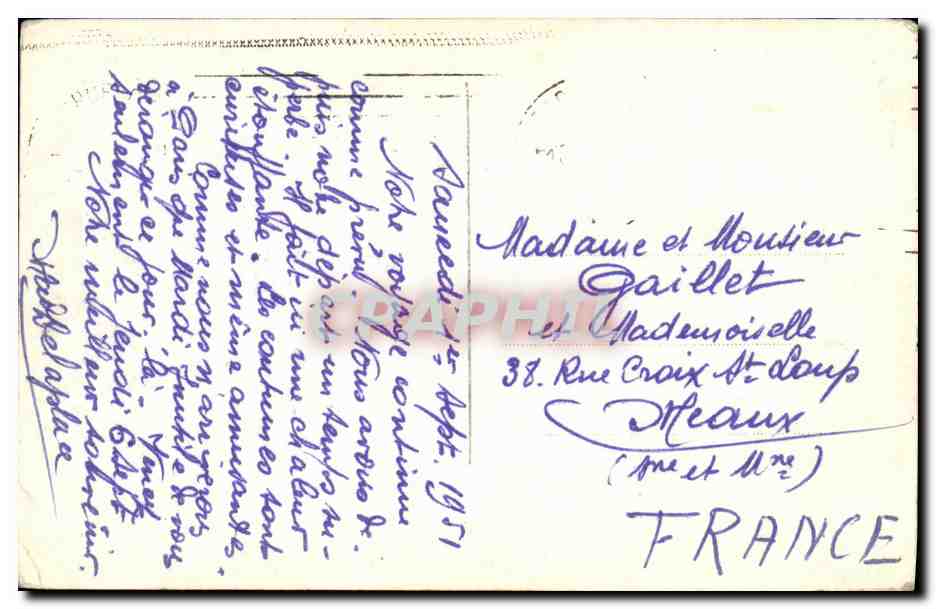 Samedi 1er Sept. 1951
Notre voyage continue
comme prévu. Nous avons de-
puis notre départ un temps su-
perbe. Il fait ici une chaleur
étouffante. Les costumes sont
curieuses et même amusantes
Comme nous n'arrivons
à Paris que Mardi, inutile de vous
déranger ce jour-là. Venez
seulement le Jeudi 6 Sept.
Notre meilleur souvenir.
Madame et Monsieur
Gaillet
et Mademoiselle
38. Rue Croix St- Loup
Meaux
(Sne et Mne)
FRANCE
CRAPHIL